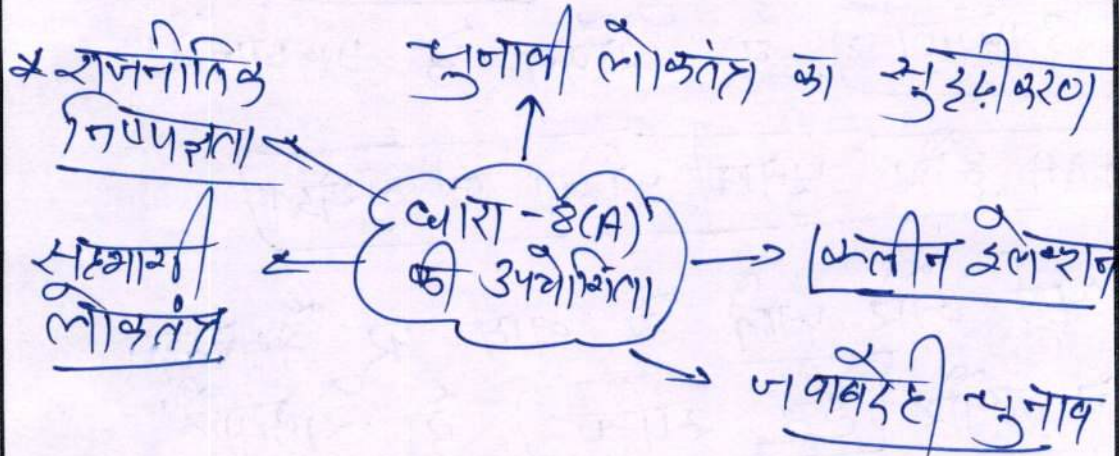 * राजनीतिक
निष्पक्षता
चुनावी लोकतंत्र का सुदृढ़ीकरण
धारा - 8(A)
की उपयोगिता
सहभागी
लोकतंत्र
क्लीन इलेक्शन
जवाबदेही चुनाव